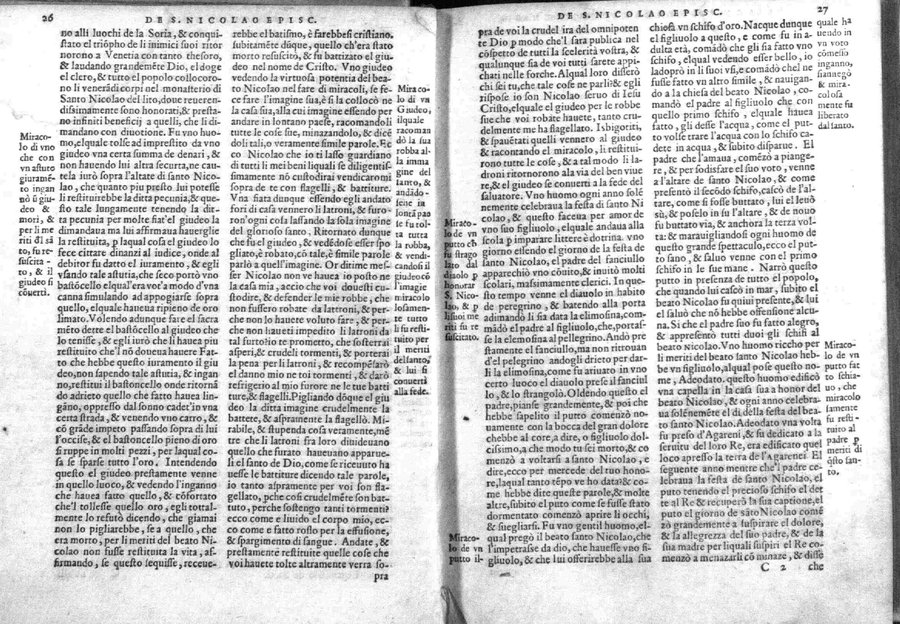 26
DE S. NICOLAO EPISC.
no alli luochi de la Soria, & conqui-
stato el triõpho de li inimici suoi ritor
norono a Venetia con tanto thesoro,
& laudando grandemẽte Dio, el doge
el clero, & tutto el popolo collocoro-
no li venerãdi corpi nel monasterio di
Santo Nicolao del lito, doue reueren-
dissimamente sono honorati, & presta-
no infiniti beneficij a quelli, che li di-
mandano con diuotione. Fu vno huo-
mo, elquale tolse ad imprestito da vno
giudeo vna certa summa de denari, &
non hauendo lui altra sicurta, ne cau-
tela iurò sopra l'altare di santo Nico-
lao, che quanto piu presto lui potesse
li restituirebbe la ditta pecunia, & que-
sto tale lungamente tenendo la dit-
ta pecunia per molte fiate el giudeo la
dimandaua ma lui affirmaua hauerglie
la restituita, p laqual cosa el giudeo lo
fece citare dinanzi al iudice, onde al
debitor fu datto el iuramento, & egli
vsando tale astutia, che seco portò vno
bastõcello elqual era vot'a modo d'vna
canna simulando ad appogiarse sopra
quello, elquale haueua ripieno de oro
limato. Volendo adunque fare el sacra
mẽto dette el bastõcello al giudeo che
lo tenisse, & egli iurò che li hauea piu
restituito che'l nõ doueua hauere Fat-
to che hebbe questo iuramento il giu
deo, non sapendo tale astutia, & ingan
no, restituì il bastoncello onde ritornã
do adrieto quello che fatto hauea lin-
gãno, oppresso dal sonno cadet'in vna
certa strada, & venendo vno carro, &
cõ grãde impeto passando sopra di lui
l'occise, & el bastoncello pieno di oro
si ruppe in molti pezzi, per laqual co-
sa se sparse tutto l'oro. Intendendo
questo el giudeo prestamente venne
in quello luoco, & vedendo l'inganno
che hauea fatto quello, & cõfortato
ch'el tollesse quello oro, egli tottal-
mente lo refutò dicendo, che giamai
non lo pigliarebbe, se a quello, che
era morto, per li meriti del beato Ni-
colao non fusse restituita la vita, af-
firmando, se questo sequisse, receue-
rebbe el battismo, è farebbesi cristiano.
subitamẽte dũque, quello ch'era stato
morto resuscitò, & fu battizato el giu-
deo nel nome de Cristo. Vno giudeo
vedendo la virtuosa potentia del bea-
to Nicolao nel fare di miracoli, se fe-
ce fare l'imagine sua, è sì la collocò ne
la casa sua, alla cui imagine essendo per
andare in lontano paese, racomandoli
tutte le cose sue, minazandolo, & dicẽ
doli tali, o veramente simile parole. Ec
co Nicolao che io ti lasso guardiano
di tutti li mei beni liquali se diligenti-
simamente nó custodirai vendicaromi
sopra de te con flagelli, & battiture.
Vna fiata dunque essendo egli andato
fori di casa vennero li latroni, & furo-
ron'ogni cosa lassando la sola imagine
del glorioso santo. Ritornato dunque
che fu el giudeo, & vedẽdose esser spo
gliato, è robato, cõ tale, è simile parole
parlò a quell'imagine. Or ditime mes-
ser Nicolao non ve hauea io posto ne
la casa mia, accio che voi douesti cu-
stodire, & defender le mie robbe, che
non fussero robate da latroni, & per-
che non lo hauete voluto fare, & per-
che non haueti impedito li latroni da
tal furto? io te prometto, che sosterrai
asperi, & crudeli tormenti, & porterai
la pena per li latroni, & recompẽsarò
el danno mio ne toi tormenti, & darò
refrigerio al mio furore ne le tue batti
ture, & flagelli. Pigliando dũque el giu
deo la ditta imagine crudelmente la
battere, & aspramente la flagellò. Mi-
rabile, & stupenda cosa veramente, mẽ
tre che li latroni fra loro diuideuano
quello che furato haueuano apparue-
li el santo de Dio, come se riceuuto ha
uesse le battiture dicendo tale parole,
io tanto aspramente per voi son fla-
gellato, pche cosi crudelmẽte son bat-
tuto, perche sostengo tanti tormenti?
ecco come e liuido el corpo mio, ec-
co come e fatto rosso per la effusione,
& spargimento di sangue. Andate, &
prestamente restituite quelle cose che
voi hauete tolte altramente verra so-
pra
Miraco-
lo di vno
che con
vn astuto
giuramẽ-
to ingan
nò ũ giu
deo &
morì, &
per li me
riti di sã
to, fu re-
suscita-
to, & il
giudeo si
cõuerti.
Miraco-
lo di vn
Giudeo,
ilquale
racoman
dò la sua
robba al-
la imma
gine del
santo, &
andãdo-
sene in
lontã pae
se fu tol-
ta tutta
la robba,
& vendi-
candosi il
giudeo cõ
l'imagie
miracolo
losamen-
te tutto
li fu resti
tuito per
il meriti
del santo,
& lui si
conuerti
alla fede.
DE S. NICOLAO EPISC.
27
pra de voi la crudel ira del omnipoten
te Dio p modo che'l sara publica nel
cõspetto de tutti la scelerità vostra, &
qualunque sia de voi tutti sarete appi-
chati nelle forche. Alqual loro disserò
chi sei tu, che tale cose ne parli: & egli
rispose io son Nicolao seruo di Iesu
Cristo, elquale el giudeo per le robbe
sue che voi robate hauete, tanto cru-
delmente me ha flagellato. Isbigoriti,
& spauẽtati quelli vennero al giudeo
& racontando el miracolo, li restitui-
rono tutte le cose, & a tal modo li la-
droni ritornorono ala vi del ben viue
re, & el giudeo se conuertì a la fede del
saluatore. Vno huomo ogni anno sole
nemente celebraua la festa di santo Ni
colao, & questo faceua per amor de
vno suo figliuolo, elquale andaua alla
scola p imparare littere è dotrina. vno
giorno essendo el giorno de la festa de
santo Nicolao, el padre del fanciullo
aparechiò vno cõuito, & inuitò molti
scolari, massimamente clerici. In que-
sto tempo venne el diauolo in habito
de peregrino, & batendo alla porta
adimandò li sia data la elimosina, com-
mãdò el padre al figliuolo, che, portas-
se la elemosina al pellegrino. Andò pre
stamente el fanciullo, ma non ritrouan
do el pelegrino andogli drieto per dar-
li la elimosina, come fu ariuato in vno
certo luoco el diauolo prese il fanciul
lo, & lo strangolò. Oldendo questo el
padre, pianse grandemente, & poi che
hebbe sapelito il putto comenzò no-
uamente con la bocca del gran dolore
chebbe al core, a dire, o figliuolo dol-
cissimo, a che modo tu sei morto, & co
menzò a voltarsi a santo Nicolao, e
dire, ecco per mercede del tuo hono-
re, laqual tanto tẽpo ve ho data? & co-
me hebbe dite queste parole, & molte
altre, subito el puto come se fusse stato
dormentato comenzò aprire li ochi,
& sueglíarsi. Fu vno gentil huomo, el-
qual pregò il beato santo Nicolao, che
l'impetrasse da dio, che hauesse vno fi-
gliuolo, & che lui offerirebbe alla sua
chiesa vn schifo d'oro. Nacque dunque
el figliuolo a questo, e come fu in a-
dulta età, comãdò che gli sia fatto vno
schifo, elqual vedendo esser bello, io
ladoprò in li suoi vsi, e comãdò chel ne
fusse fatto vn altro simile, & nauigan-
do a la chiesa del beato Nicolao, com-
mandò el padre al figliuolo che con
quello primo schifo, elquale hauea
fatto, gli desse l'acqua, come el put-
to volse tirare l'acqua con lo schifo ca-
dete in acqua, & subito disparue. El
padre che l'amaua, comẽzò a piange-
re, & per sodisfare el suo voto, venne
a l'altare de santo Nicolao, & come
presentò il secõdo schifo, cascò de l'al-
tare, come si fosse buttato, lui el leuò
su, & poselo in su l'altare, & de nouo
fu buttato via, & anchora la terza vol-
ta: & marauigliandosi ogni huomo de
questo grande spettaculo, ecco el put-
to sano, & saluo venne con el primo
schifo in le sue mane. Narrò questo
putto in presenza de tutto el popolo,
che quando lui cascò in mar, subito el
beato Nicolao fu quiui presente, & lui
el saluò che nó hebbe offensione alcu-
na. Si che el padre suo fu fatto alegro,
& appresentò tutti duoi gli schifi al
beato Nicolao. Vno huomo riccho per
li meriti del beato santo Nicolao heb-
be vn figliuolo, alqual pose questo no-
me, Adeodato. questo huomo edificò
vna capella in la casa sua a honor del
beato Nicolao, & ogni anno celebra-
ua solénemẽte el dì della festa del bea-
to santo Nicolao. Adeodato vna volta
fu preso d'Agareni, & fu dedicato a la
seruitu del loro Re, era edificato quel
loco apresso la terra de l'Agareni El
seguente anno mentre che'l padre ce-
lebraua la festa de santo Nicolao, el
puto tenendo el precioso schifo el det
te al Re & recuperò la sua captione, el
puto el giorno de sãto Nicolao comẽ
zò grandemente a suspirare el dolore,
& la allegrezza del suo padre, & de la
sua madre per liquali suspiri el Re co-
menzò a menazarli cõ minaze, & disse
C 2 che
Miraco-
lo de vn
putto ch
fu strago
lato dal
diaolo p
honorar
S. Nico-
lao, & p
li suoi me
riti fu re
suscitato.
Miraco-
lo de vn
putto il-
quale ha
uendo in
vn voto
cõmesso
ingãno,
annegò
& mira-
colosa
mente fu
liberato
dal santo.
Miraco-
lo de vn
putto fat
to schia-
uo, & che
miracolo
samente
fu resti-
tuito al
padre p
meriti di
q̃sto san-
to.